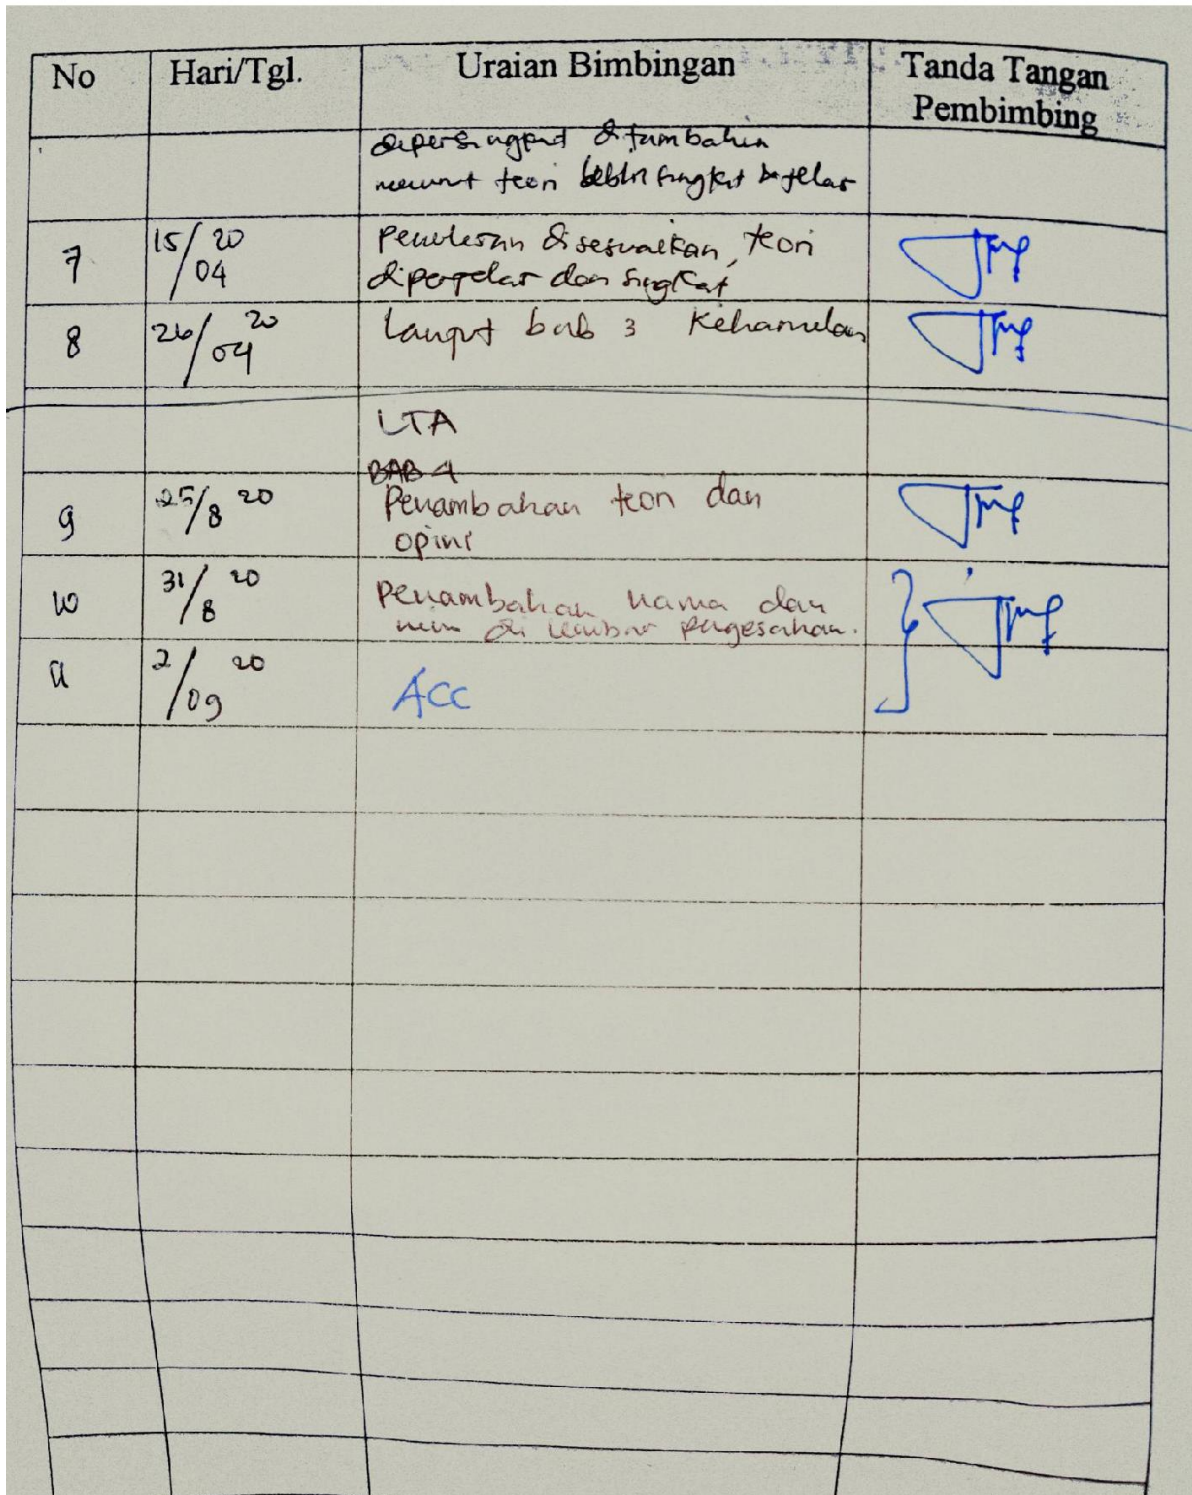 No Hari/Tgl. Uraian Bimbingan Tanda Tangan
Pembimbing
dipersingkat ditambahin
menurut teori singkat
7 15/04 20 Penulisan disesuaikan, teori
diperjelas dan singkat
8 26/04 20 Lanjut bab 3 Kehamilan
LTA
BAB 4
9 25/8 20 Penambahan teori dan
opini
10 31/8 20 Penambahan nama dan
nim di lembar pengesahan.
11 2/09 20 ACC